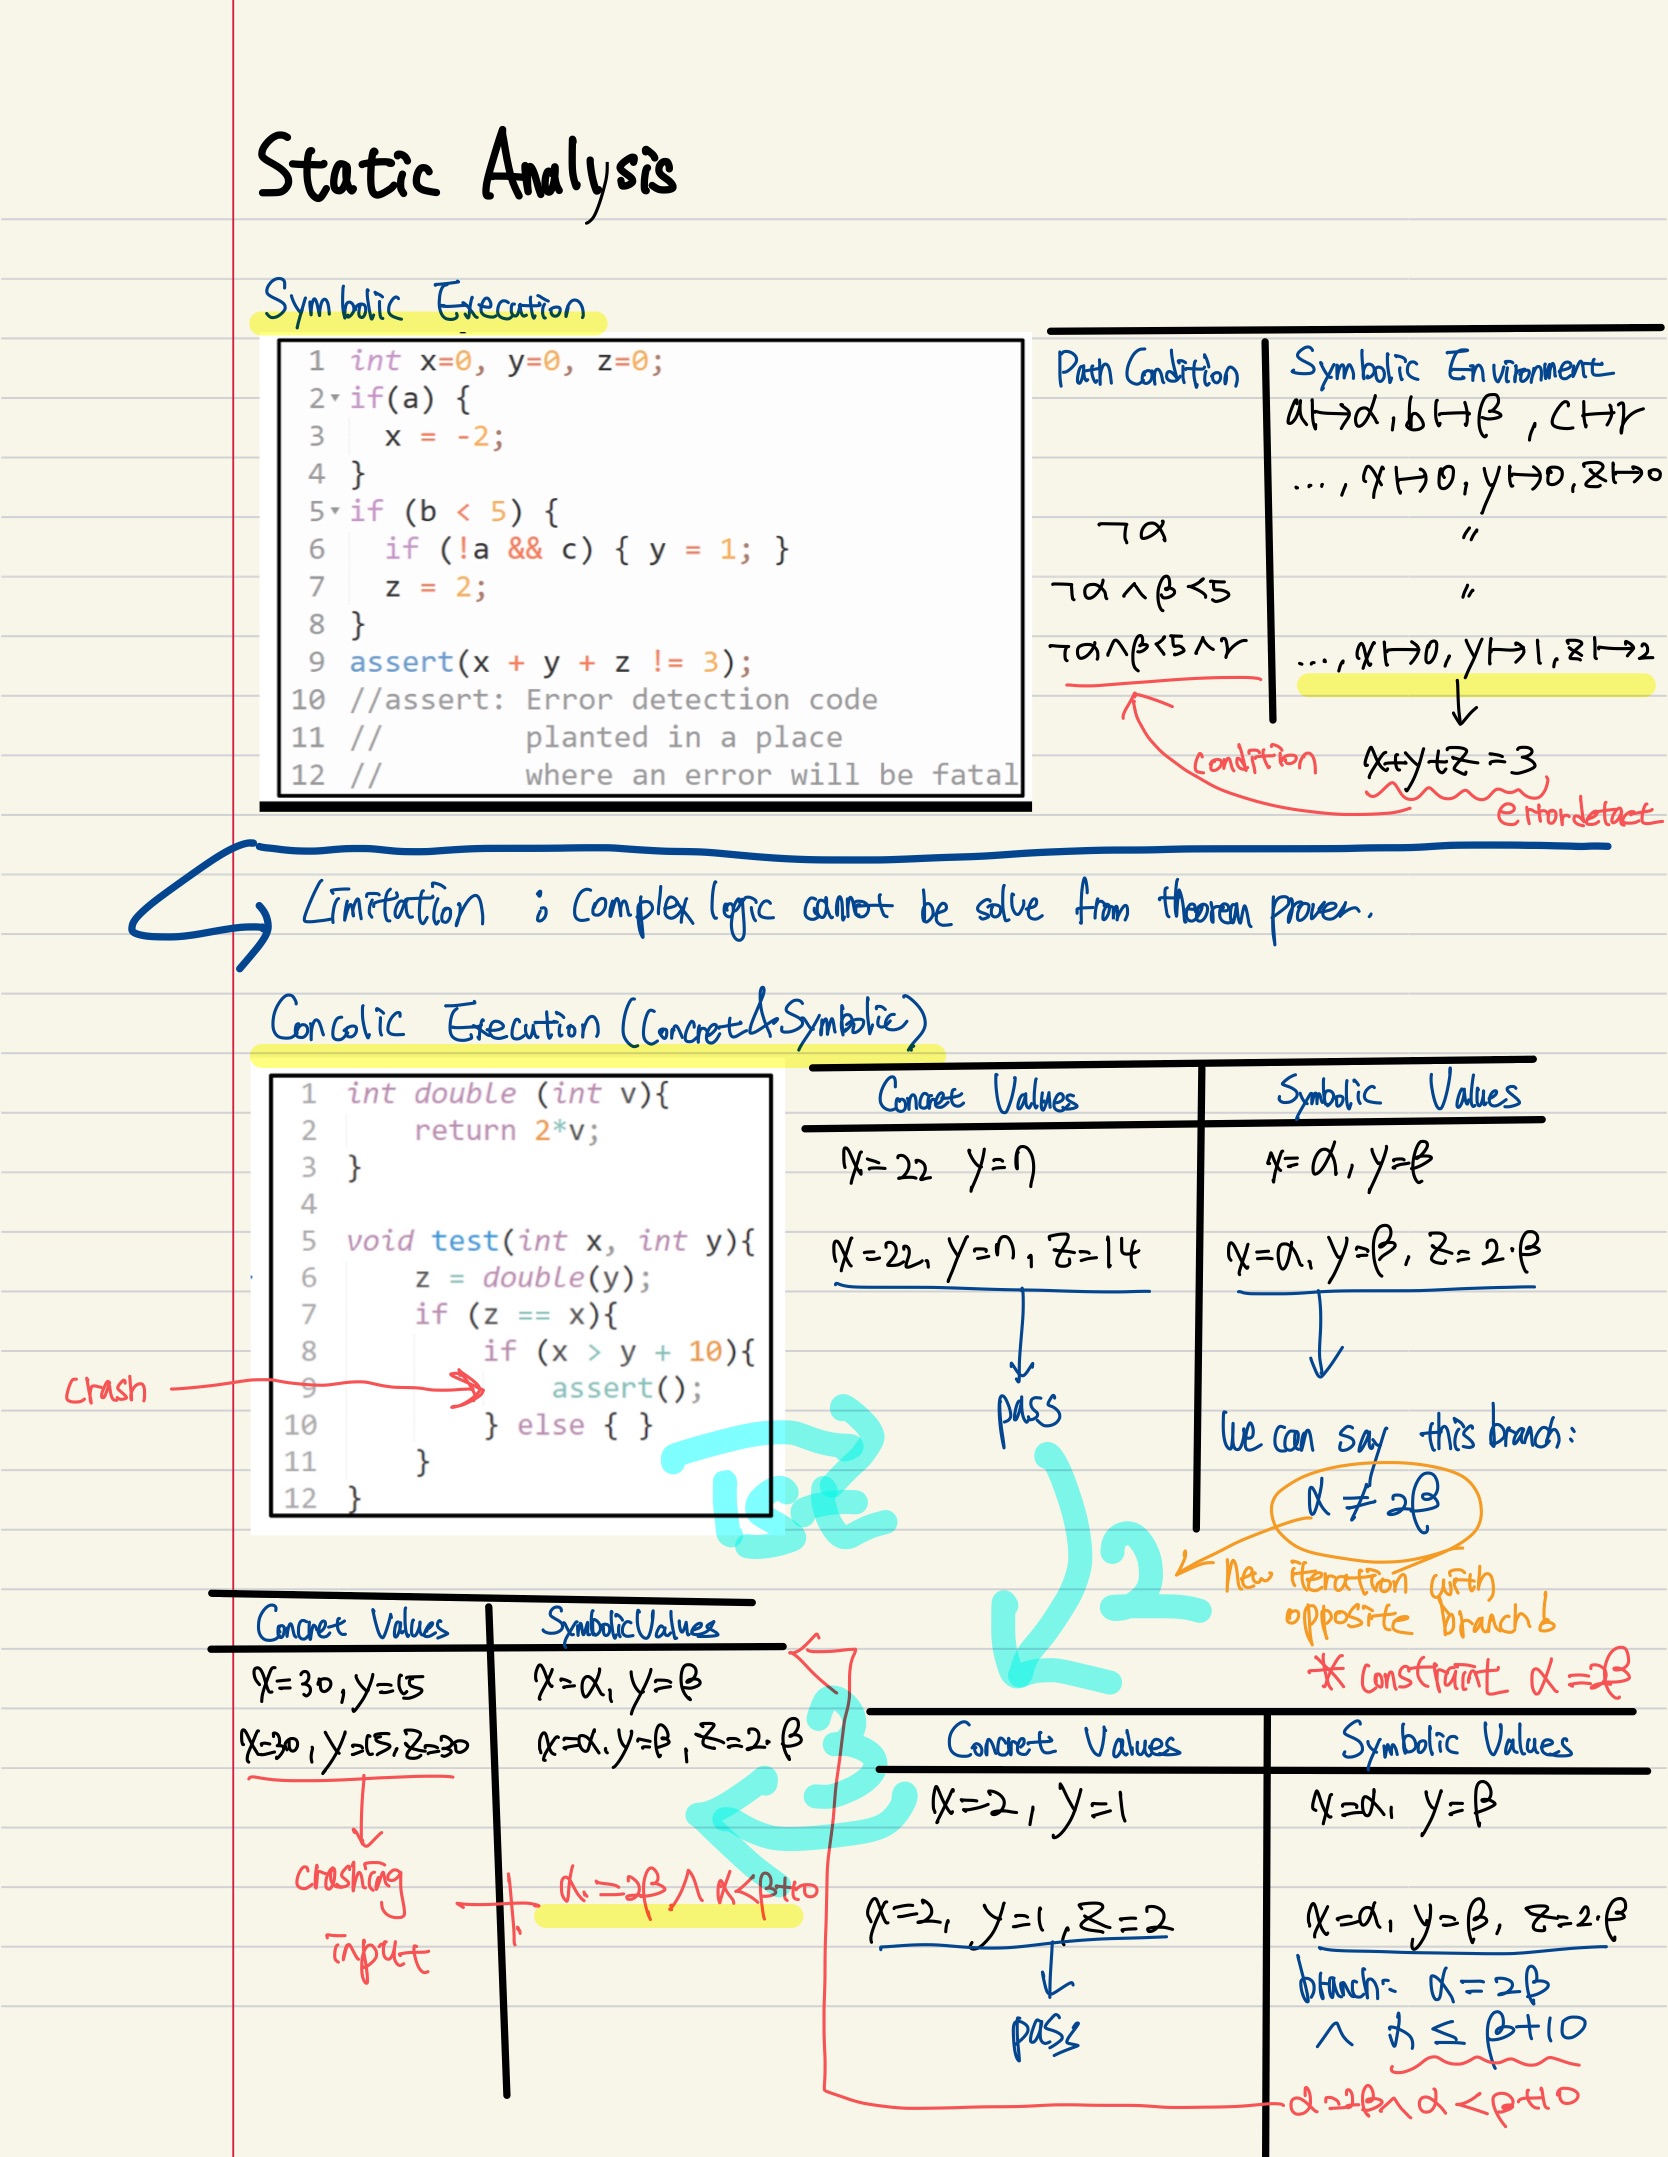 Static Analysis
Symbolic Execution
1 int x=0, y=0, z=0;
2 if(a) {
3 x = -2;
4 }
5 if (b < 5) {
6 if (!a && c) { y = 1; }
7 z = 2;
8 }
9 assert(x + y + z != 3);
10 //assert: Error detection code
11 // planted in a place
12 // where an error will be fatal
Path Condition
Symbolic Environment
a↦α, b↦β, c↦γ
..., x↦0, y↦0, z↦0
¬α
〃
¬α∧β<5
〃
¬α∧β<5∧γ
..., x↦0, y↦1, z↦2
condition
x+y+z=3
error detect
Limitation : complex logic cannot be solve from theorem prover.
Concolic Execution (Concret & Symbolic)
1 int double (int v){
2 return 2*v;
3 }
4
5 void test(int x, int y){
6 z = double(y);
7 if (z == x){
8 if (x > y + 10){
9 assert();
10 } else { }
11 }
12 }
crash
Concret Values
Symbolic Values
x=22 y=7
x=α, y=β
x=22, y=7, z=14
x=α, y=β, z=2·β
pass
We can say this branch:
α≠2β
new iteration with
opposite branch
* constraint α=2β
1st
2
3
Concret Values
Symbolic Values
x=2, y=1
x=α, y=β
x=2, y=1, z=2
x=α, y=β, z=2·β
pass
branch: α=2β
∧ α≤β+10
α=2β∧α<β+10
Concret Values
Symbolic Values
x=30, y=15
x=α, y=β
x=30, y=15, z=30
x=α, y=β, z=2·β
crashing
input
α=2β∧α<β+10